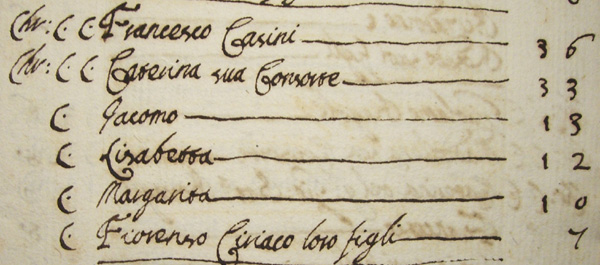 Chr: C C Francesco Casini 3 6
Chr: C C Caterina sua Consorte 3 3
C Jacomo 1 3
C Lisabetta 1 2
C Margarita 1 0
C Fiorenzo Ciriaco loro figli 7